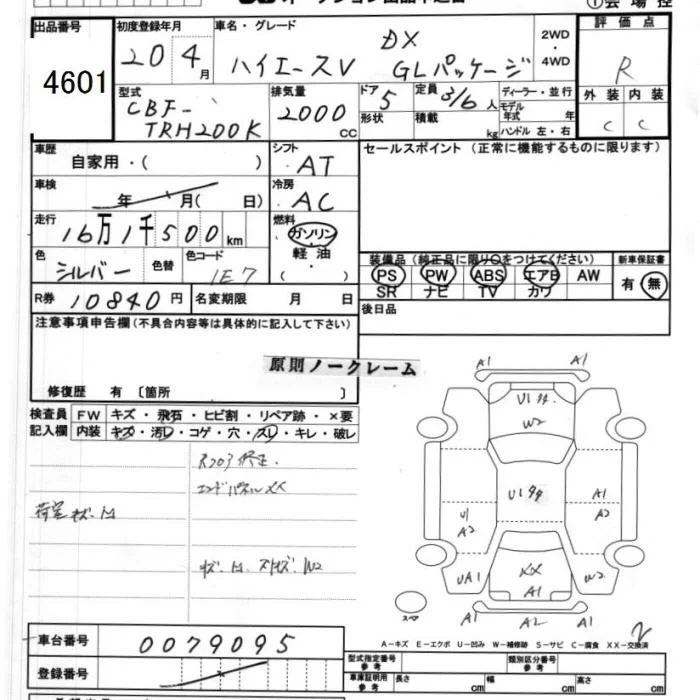 出品番号
4601
初度登録年月
20 4月
車名・グレード
ハイエースV
DX
GLパッケージ
2WD
・
4WD
評価点
R
型式
CBF-
TRH200K
排気量
2000
CC
ドア
5
形状
定員
3/6人
積載
kg
ディーラー・並行
モデル
年式 年
ハンドル 左・右
外装 内装
C C
車歴
自家用・( )
シフト
AT
セールスポイント (正常に機能するものに限ります)
車検
年 月( 日)
冷房
AC
走行
16万1千500km
燃料
ガソリン
軽油
( )
色
シルバー
色替
色コード
1E7
装備品 (純正品に限り○をつけてください)
PS PW ABS エアB AW
SR ナビ TV カワ
新車保証書
有・無
R券 10840円
名変期限 月 日
後日品
注意事項申告欄(不具合内容等は具体的に記入して下さい)
原則ノークレーム
修復歴 有 〔箇所 〕
検査員
記入欄
FW キズ・飛石・ヒビ割・リペア跡・×要
内装 キズ・汚レ・コゲ・穴・スレ・キレ・破レ
エンドパネルXX
荷室キズ.
A1 A1
U1
W2
U1
U1
A2
A1
A2
UA1
XX
A1
W2
A1 A2 A1
スペア
2
A-キズ E-エクボ U-凹み W-補修跡 S-サビ C-腐食 XX-交換済
車台番号
0079095
登録番号
型式指定番号
参考
類別区分番号
参考
車庫証明用
参考
長さ cm
幅 cm
高さ cm